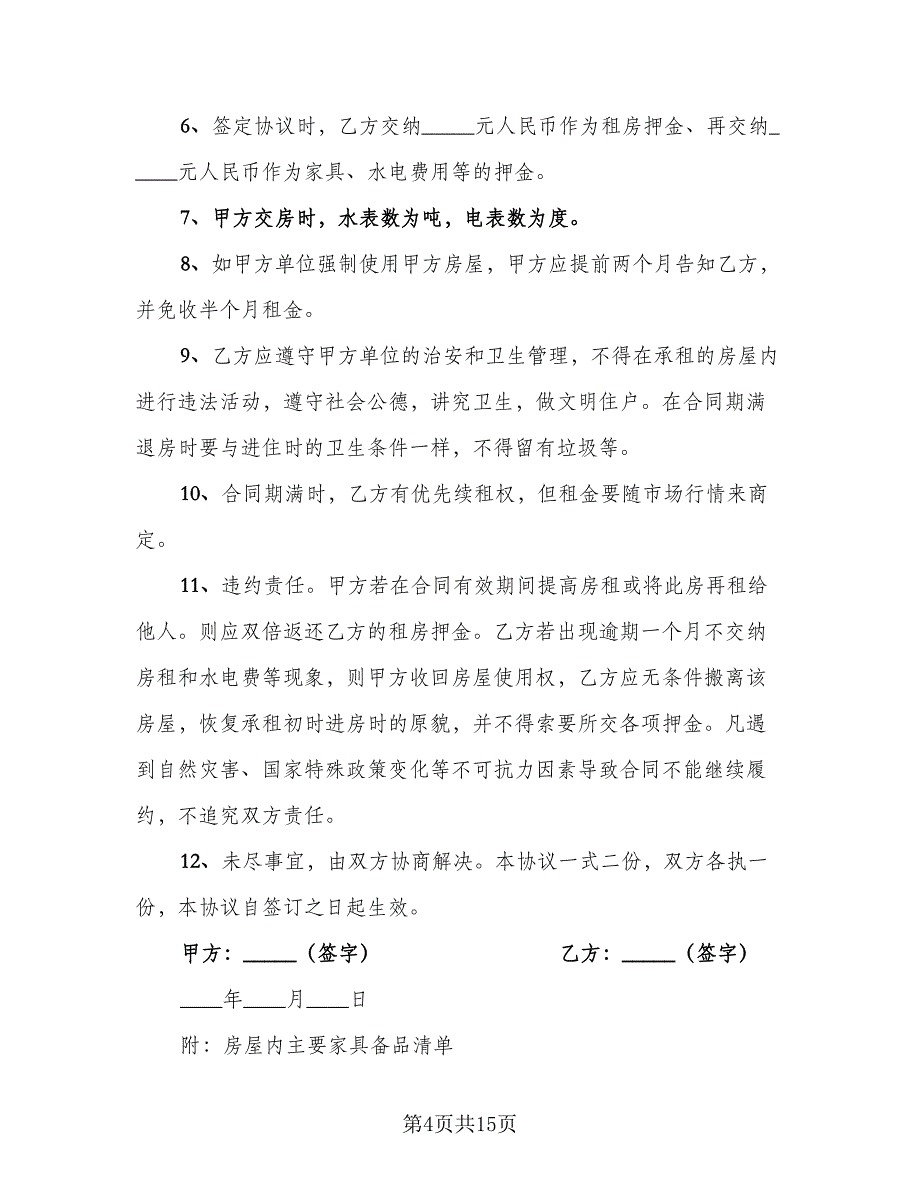 6、签定协议时，乙方交纳_____元人民币作为租房押金、再交纳_
____元人民币作为家具、水电费用等的押金。
7、甲方交房时，水表数为吨，电表数为度。
8、如甲方单位强制使用甲方房屋，甲方应提前两个月告知乙方，
并免收半个月租金。
9、乙方应遵守甲方单位的治安和卫生管理，不得在承租的房屋内
进行违法活动，遵守社会公德，讲究卫生，做文明住户。在合同期满
退房时要与进住时的卫生条件一样，不得留有垃圾等。
10、合同期满时，乙方有优先续租权，但租金要随市场行情来商
定。
11、违约责任。甲方若在合同有效期间提高房租或将此房再租给
他人。则应双倍返还乙方的租房押金。乙方若出现逾期一个月不交纳
房租和水电费等现象，则甲方收回房屋使用权，乙方应无条件搬离该
房屋，恢复承租初时进房时的原貌，并不得索要所交各项押金。凡遇
到自然灾害、国家特殊政策变化等不可抗力因素导致合同不能继续履
约，不追究双方责任。
12、未尽事宜，由双方协商解决。本协议一式二份，双方各执一
份，本协议自签订之日起生效。
甲方：_____（签字） 乙方：_____（签字）
____年____月____日
附：房屋内主要家具备品清单
第4页共15页